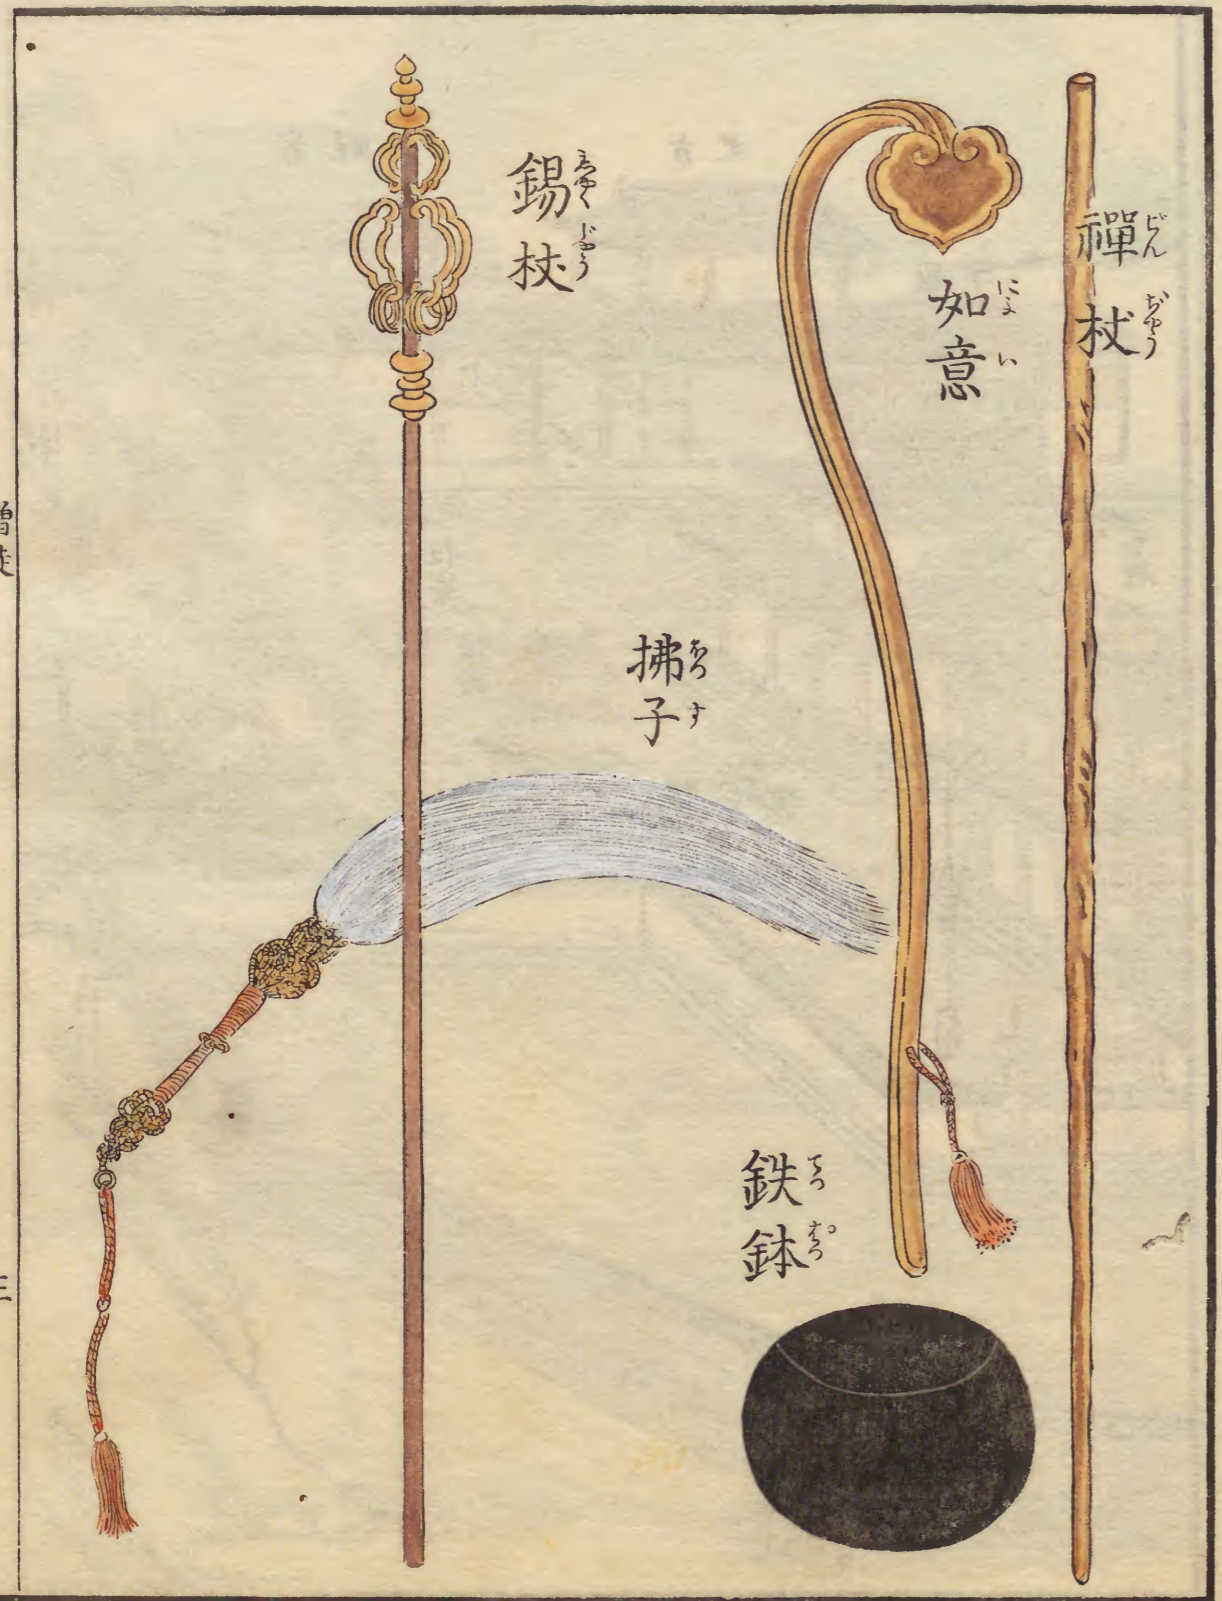 禪杖
ぢん ぢやう
如意
によ い
錫杖
しやく じやう
拂子
ほつ す
鉄鉢
てつ はつ
三